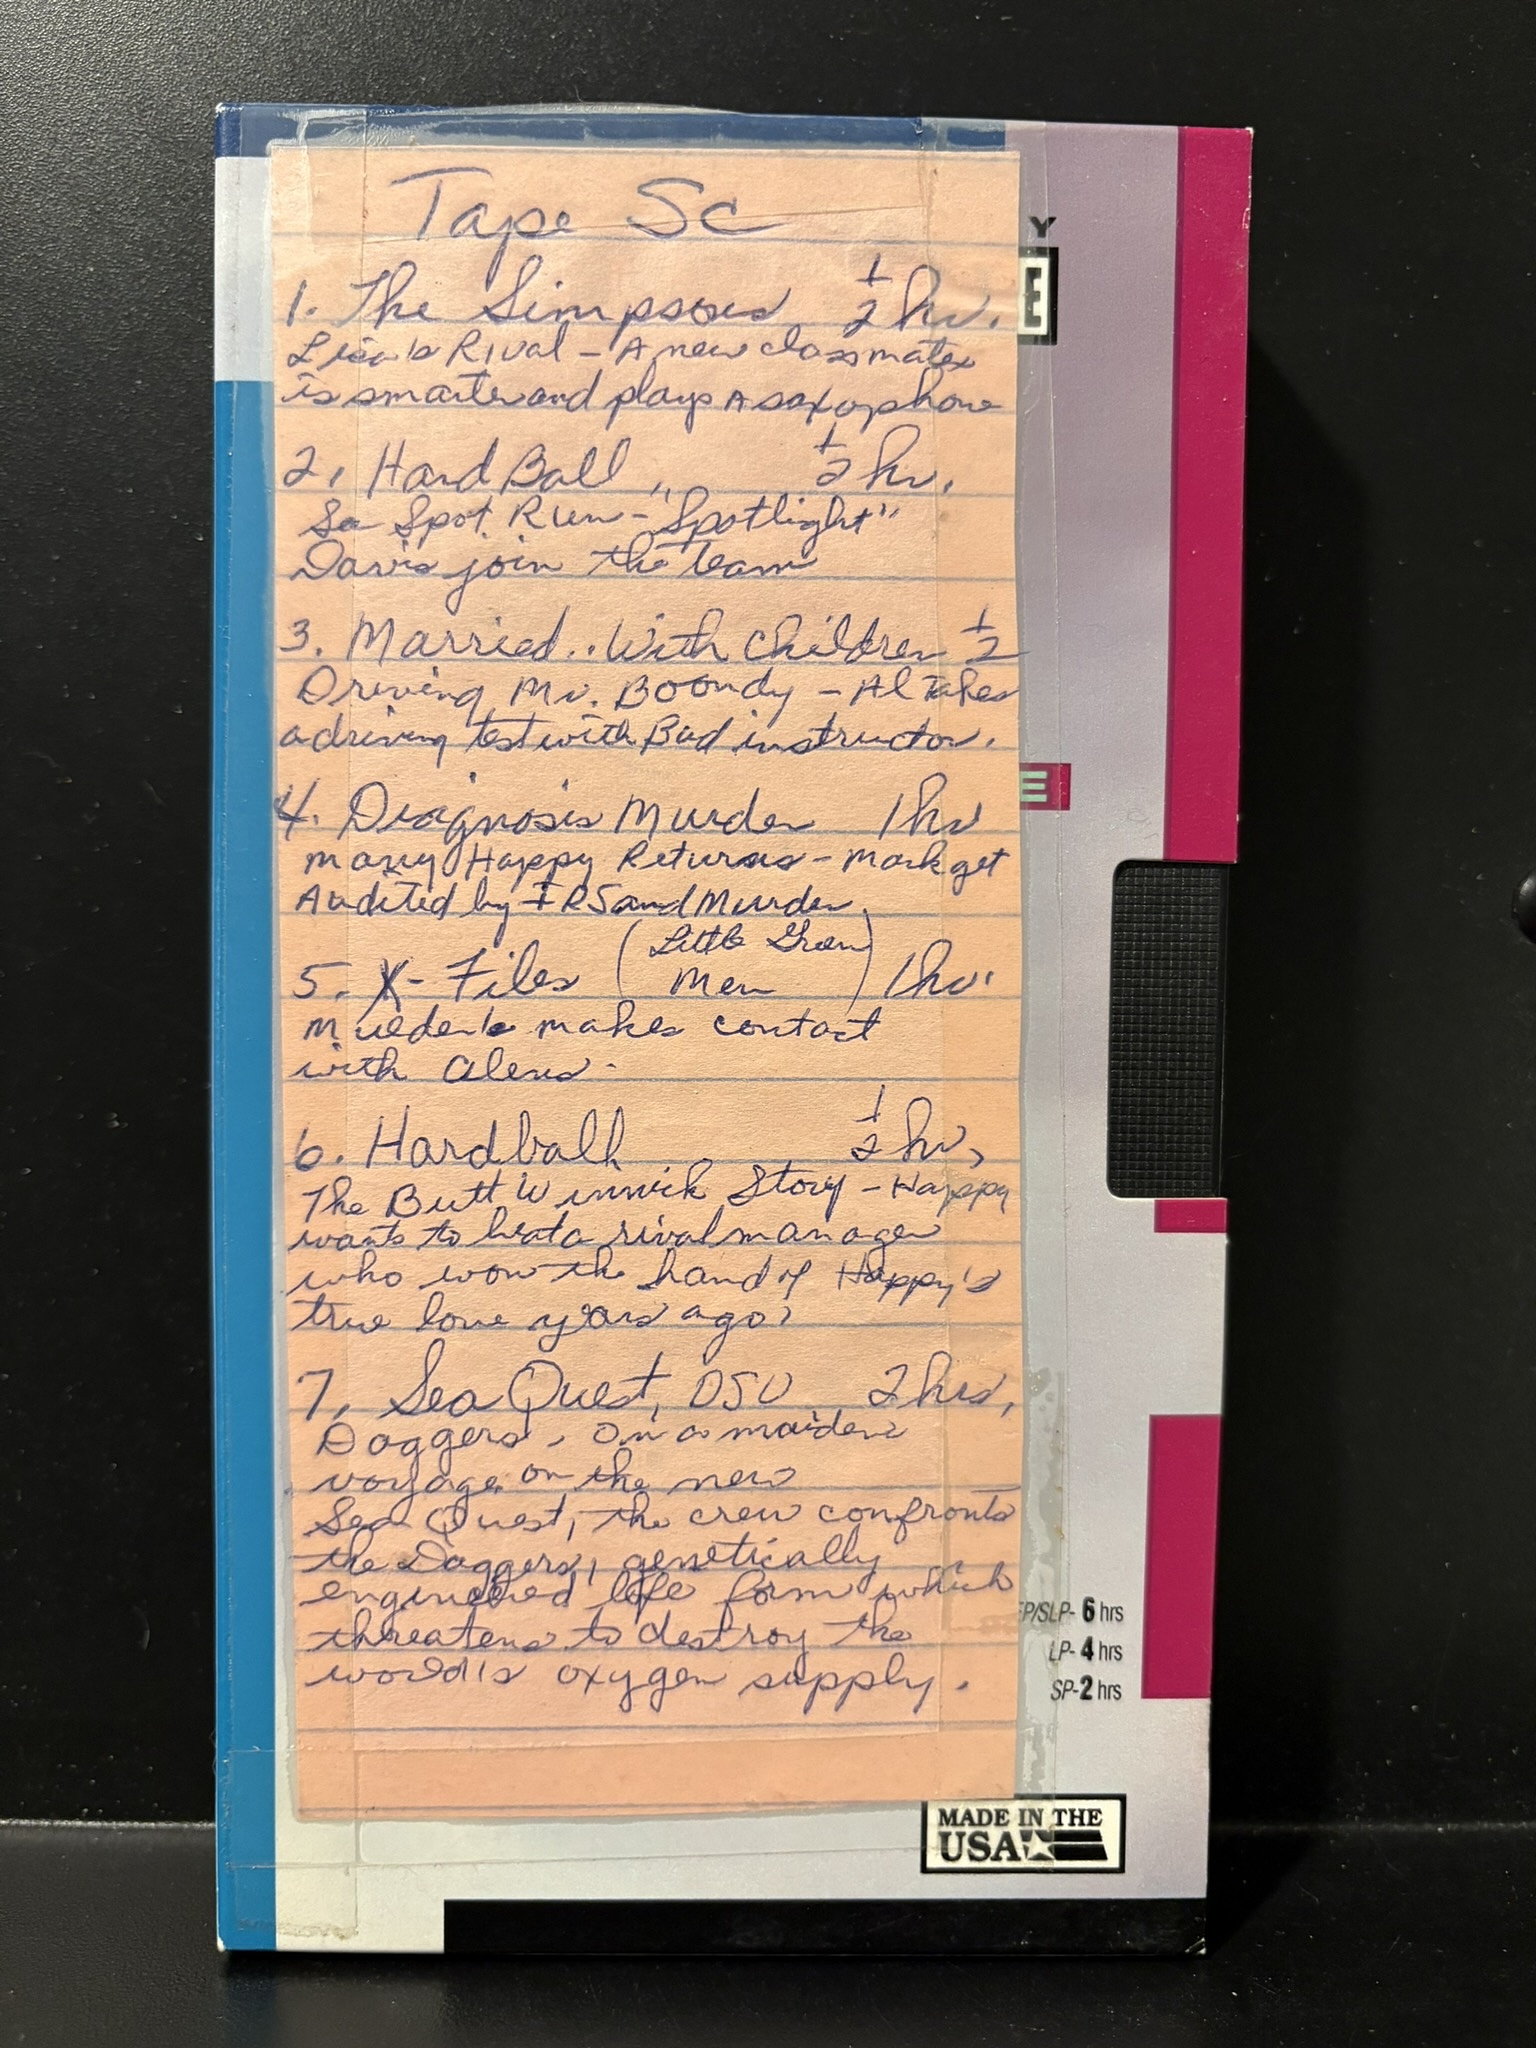 Tape Sc
1. The Simpsons 1/2 hr.
Lisa's Rival - A new classmates
is smarter and plays A saxophone
2, Hard Ball 1/2 hr.
See Spot Run - "Spotlight"
Davis join the team
3. Married.. With Children 1/2
Driving Mr. Boondy - Al Takes
a driving test with Bud instructor.
4. Diagnosis Murder 1hr
Many Happy Returns - Mark get
Audited by IRS and Murder.
5. X-Files (Little Green Men) 1hr.
Mulder's makes contact
with aliens.
6. Hardball 1/2 hr,
The Butt Winnick Story - Happy
wants to beat a rival manager
who won the hand of Happy's
true love years ago.
7, Sea Quest, DSV 2 hrs,
Daggers, On a maiden
voyage on the new
Sea Quest, the crew confronts
the Daggers, genetically
engineered life form which
threatens to destroy the
world's oxygen supply.
Y
E
E
EP/SLP- 6 hrs
LP- 4 hrs
SP- 2 hrs
MADE IN THE
USA